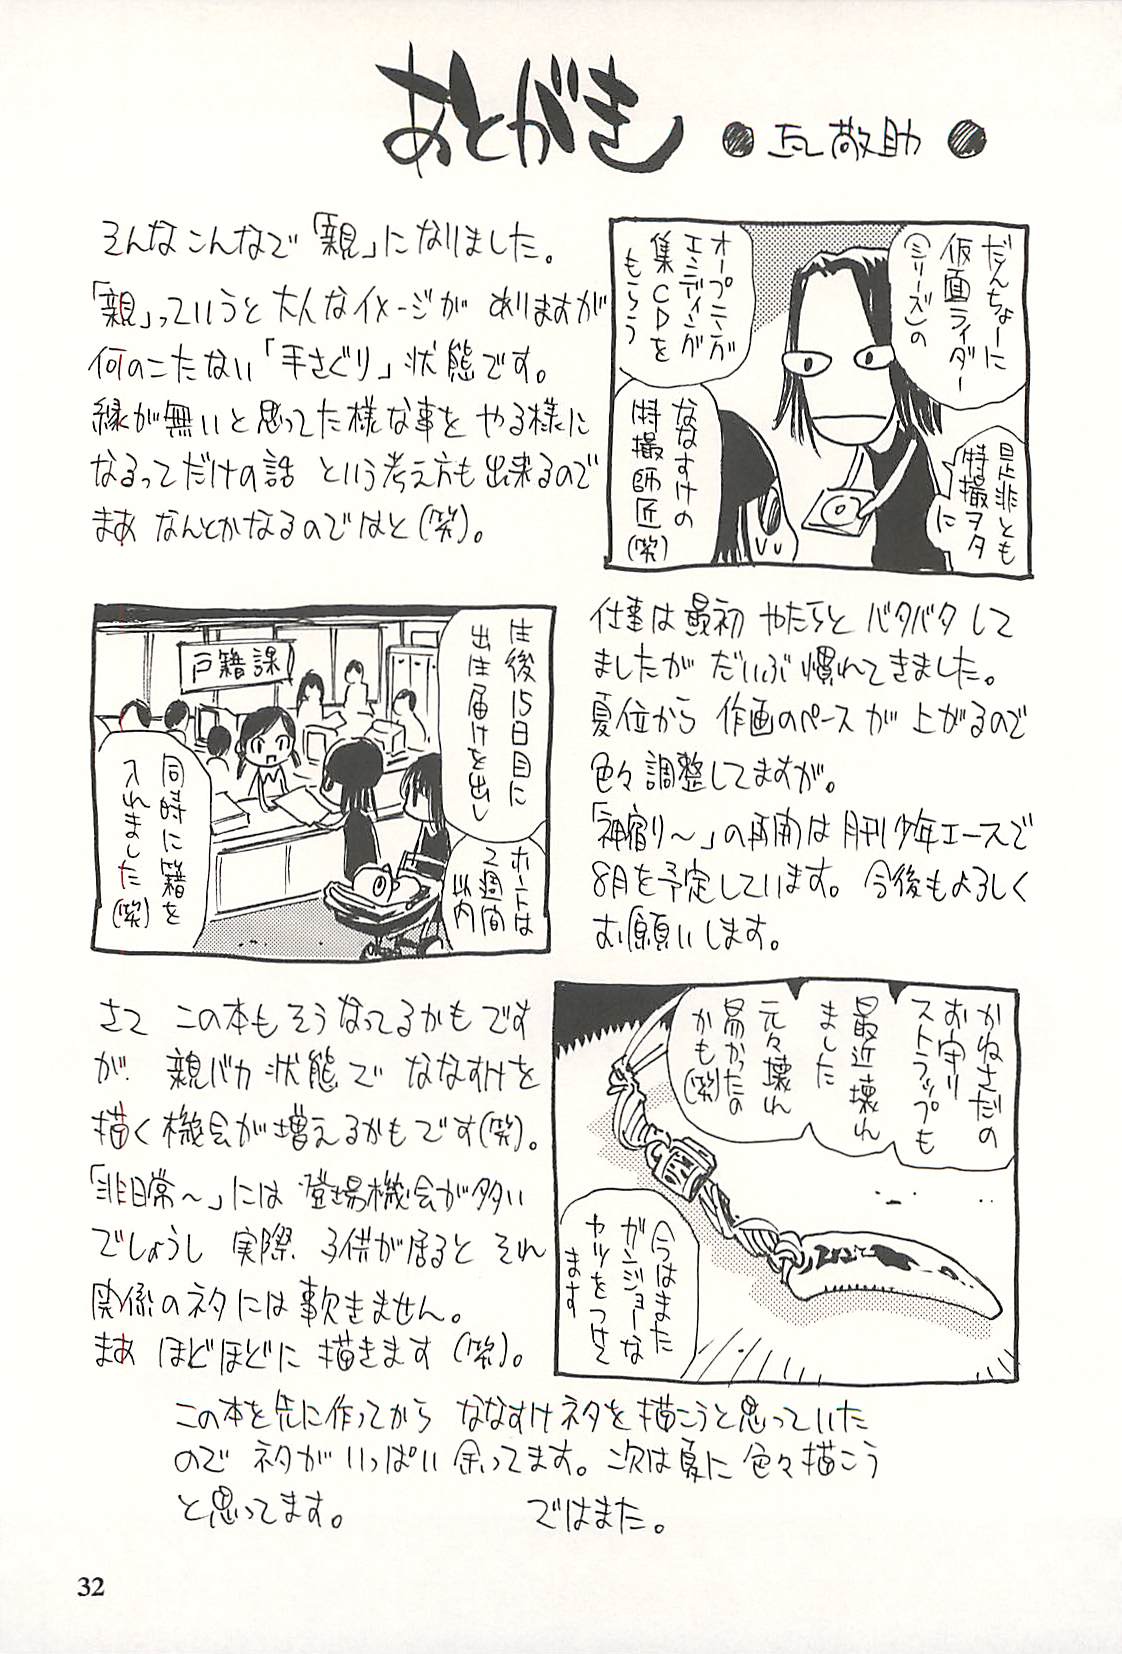 あとがき
●瓦敬助●
そんなこんなで「親」になりました。
「親」っていうと大人なイメージがありますが
何のこたない「手さぐり」状態です。
縁が無いと思ってた様な事をやる様に
なるってだけの話 という考え方も出来るので
まあ なんとかなるのではと(笑)。
だんちょーに
仮面ライダー
(シリーズ)の
オープニング
エンディング
集CDを
もらう
是非とも
特撮ヲタ
に
ななすけの
特撮師匠
(笑)
仕事は最初 やたらと バタバタ して
ましたが だいぶ 慣れてきました。
夏位から 作画のペースが 上がるので
色々調整してますが。
「神宿り〜」の再開は月刊少年エースで
8月を予定しています。今後もよろしく
お願いします。
戸籍課
生後15日目に
出生届けを出し
ホントは
2週間
以内
同時に籍を
入れました
(笑)
さて この本もそうなってるかもです
が 親バカ状態で ななすけを
描く機会が増えるかもです(笑)。
「非日常〜」には 登場機会が多い
でしょうし 実際 子供が居ると それ
関係のネタには事欠きません。
まあ ほどほどに 描きます (笑)。
かねさだの
お守り
ストラップも
最近壊れ
ました
元々壊れ
易かったの
かも(笑)
今はまた
ガンジョーな
ヤツをつけて
ます
この本を先に作ってから ななすけネタを描こうと思っていた
ので ネタが いっぱい 余ってます。次は夏に色々描こう
と思ってます。 ではまた。
32